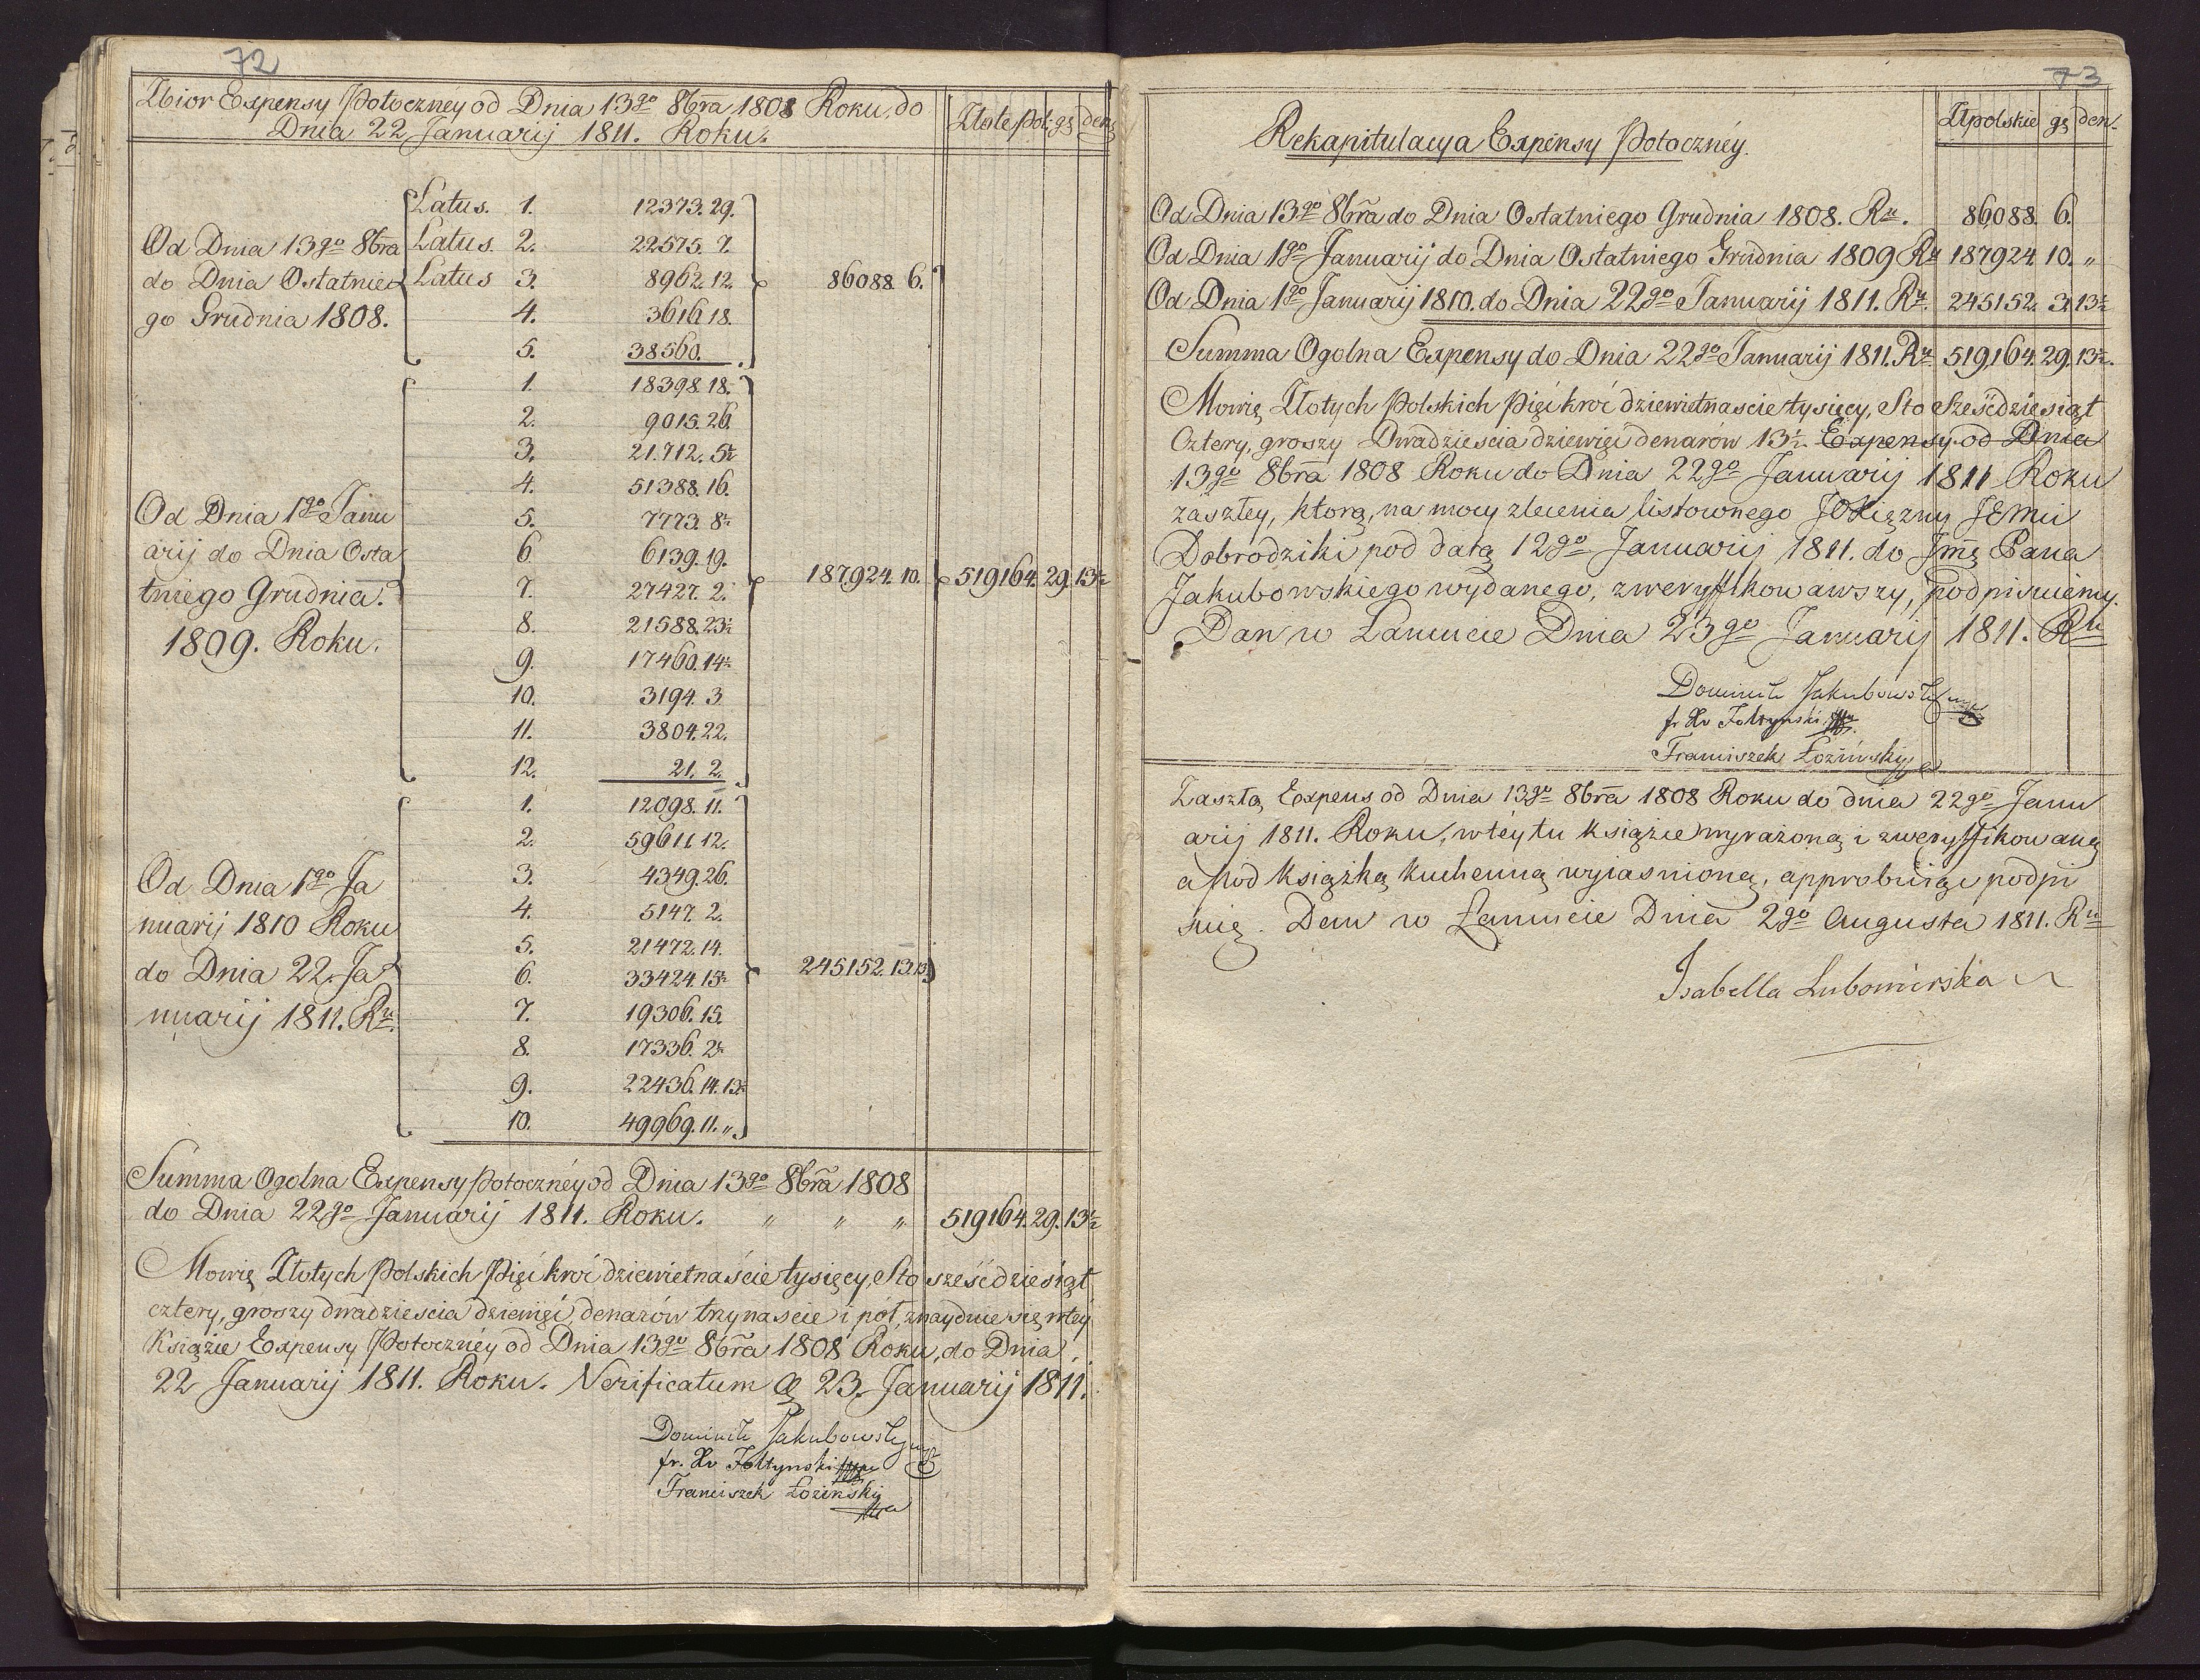 72
Zbior Expensy Potoczney od Dnia 13go 8bra 1808 Roku, do
Dnia 22 Januarij 1811. Roku.
Złote Pol: gs den
Od Dnia 13go 8bra
do Dnia Ostatnie
go Grudnia 1808.
Latus. 1. 12373. 29.
Latus. 2. 22575. 7.
Latus 3. 8962. 12.
4. 3616 18.
5. 38560.
86088 6.
Od Dnia 1go Janu
arij do Dnia Osta
tniego Grudnia.
1809. Roku.
1. 18398. 18.
2. 9015. 26.
3. 21.712. 5½
4. 51388. 16.
5. 7773. 8½
6 6139. 19.
7. 27427. 2.
8. 21588. 23½
9. 17460. 14½
10. 3194. 3
11. 3804. 22.
12. 21. 2.
187924. 10.
519164. 29. 13½
Od Dnia 1go Ja
nuarij 1810 Roku
do Dnia 22. Ja
nuarij 1811. Ru.
1. 12098. 11.
2. 59611. 12.
3. 4349. 26.
4. 5147. 2.
5. 21472. 14.
6. 33424. 15½
7. 19306. 15.
8. 17336. 2½
9. 22436. 14. 13½
10. 49969. 11. „
245152. 13. 13½
Summa Ogolna Expensy Potoczney od Dnia 13go 8bra 1808
do Dnia 22go Januarij 1811. Roku. „ „ „ 519164. 29. 13½
Mowię Złotych Polskich Pięćkroć dziewietnaście tysięcy, Sto sześćdziesiąt
cztery, groszy dwadzieścia dziewięć, denarów trzynascie i pół, znayduie się w tey
Księżie Expensy Potoczney od Dnia 13go 8bra 1808 Roku, do Dnia
22 Januarij 1811. Roku. Verificatum 23. Januarij 1811.
Dominik Jakubowski
fr. Xw Foltynski
Franciszek Łoziński
73
Rekapitulacya Expensy Potoczney.
Złpolskie gs den.
Od Dnia 13go 8bra do Dnia Ostatniego Grudnia 1808. Ru. 86088. 6.
Od Dnia 1go Januarij do Dnia Ostatniego Grudnia 1809 Ru 187924. 10. „
Od Dnia 1go Januarij 1810. do Dnia 22go Januarij 1811. Ru. 245152. 3 13½
Summa Ogolna Expensy do Dnia 22go Januarij 1811. Ru 519,164. 29. 13½.
Mowię Złotych Polskich Pięćkroć dziewietnascie tysięcy, Sto Sześćdziesiąt
Cztery, groszy Dwadzieścia dziewięć denarow 13½ Expensy od Dnia
13go 8bra 1808 Roku do Dnia 22go Januarij 1811 Roku
zaszłey, ktorą, na mocy zlecenia listownego JOXiężny JEMci
Dobrodziki pod datą 12go Januarij 1811. do Jmę Pana
Jakubowskiego wydanego, zweryffikowawszy, podpisuiemy.
Dan w Łancucie Dnia 23go Januarij 1811. Ru
Dominik Jakubowski
fr Xw Foltynski
Franciszek Łoziński
Zaszłą Expens od Dnia 13go 8bra 1808 Roku do dnia 22go Janu
arij 1811. Roku, w tey tu Książce wyrażoną i zweryffikowaną
a pod książką kuchenną wyiasnioną, approbuiąc podpi
suię. Dan w Łancucie Dnia 2go Augusta 1811. Ru
Isabella Lubomirska